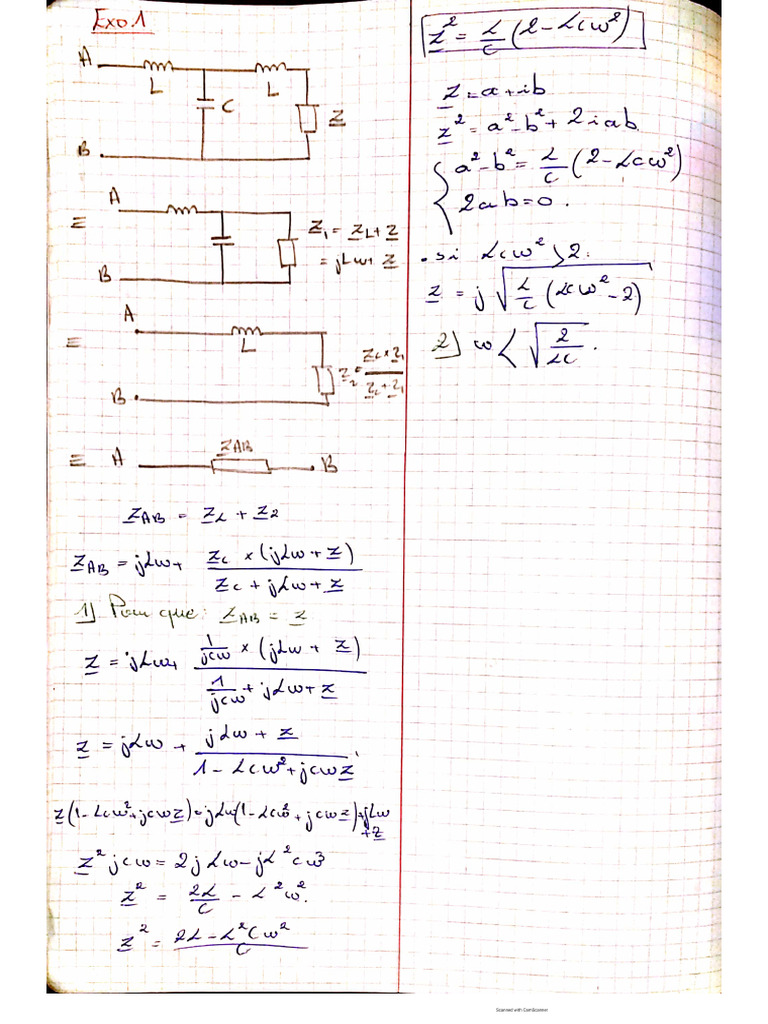 Exo.1
A
L
L
C
Z
B
≡
A
B
Z₁ = Z_L + Z
= jLω + Z
≡
A
L
B
Z₂ = (Z_C × Z₁)/(Z_C + Z₁)
≡ A Z_AB B
Z_AB = Z_L + Z₂
Z_AB = jLω + (Z_C × (jLω + Z))/(Z_C + jLω + Z)
1) Pour que : Z_AB = Z
Z = jLω + (1/jCω × (jLω + Z))/(1/jCω + jLω + Z)
Z = jLω + (jLω + Z)/(1 - LCω² + jCωZ)
Z(1 - LCω² + jCωZ) = jLω(1 - LCω² + jCωZ) + jLω + Z
Z² jCω = 2jLω - jL²Cω³
Z² = 2L/C - L²ω².
Z² = (2L - L²Cω²)/C
Z² = L/C (2 - LCω²)
Z = a + ib
Z² = a² - b² + 2iab
{ a² - b² = L/C (2 - LCω²)
2ab = 0.
. si LCω² > 2 :
Z = j√(L/C (LCω² - 2))
2) ω < √(2/LC).
Scanned with CamScanner